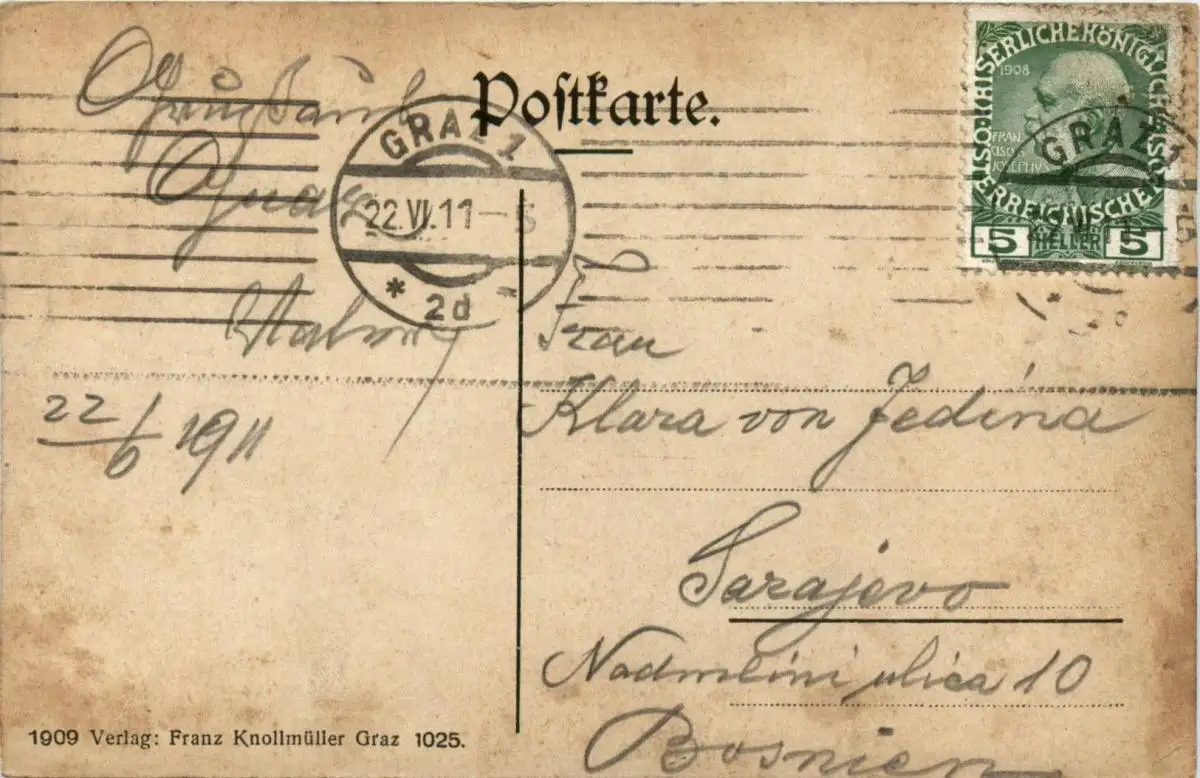 Postkarte.
KAISERLICHE KÖNIGLICHE ÖSTERREICHISCHE
1908
FRAN
CISCVS
IOSEPHVS
5 HELLER 5
GRAZ 1
GRAZ 1
22.VI.11
* 2d
22/6 1911
Frau
Klara von Jedina
Sarajevo
Nadmlini ulica 10
Bosnien
1909 Verlag: Franz Knollmüller Graz 1025.